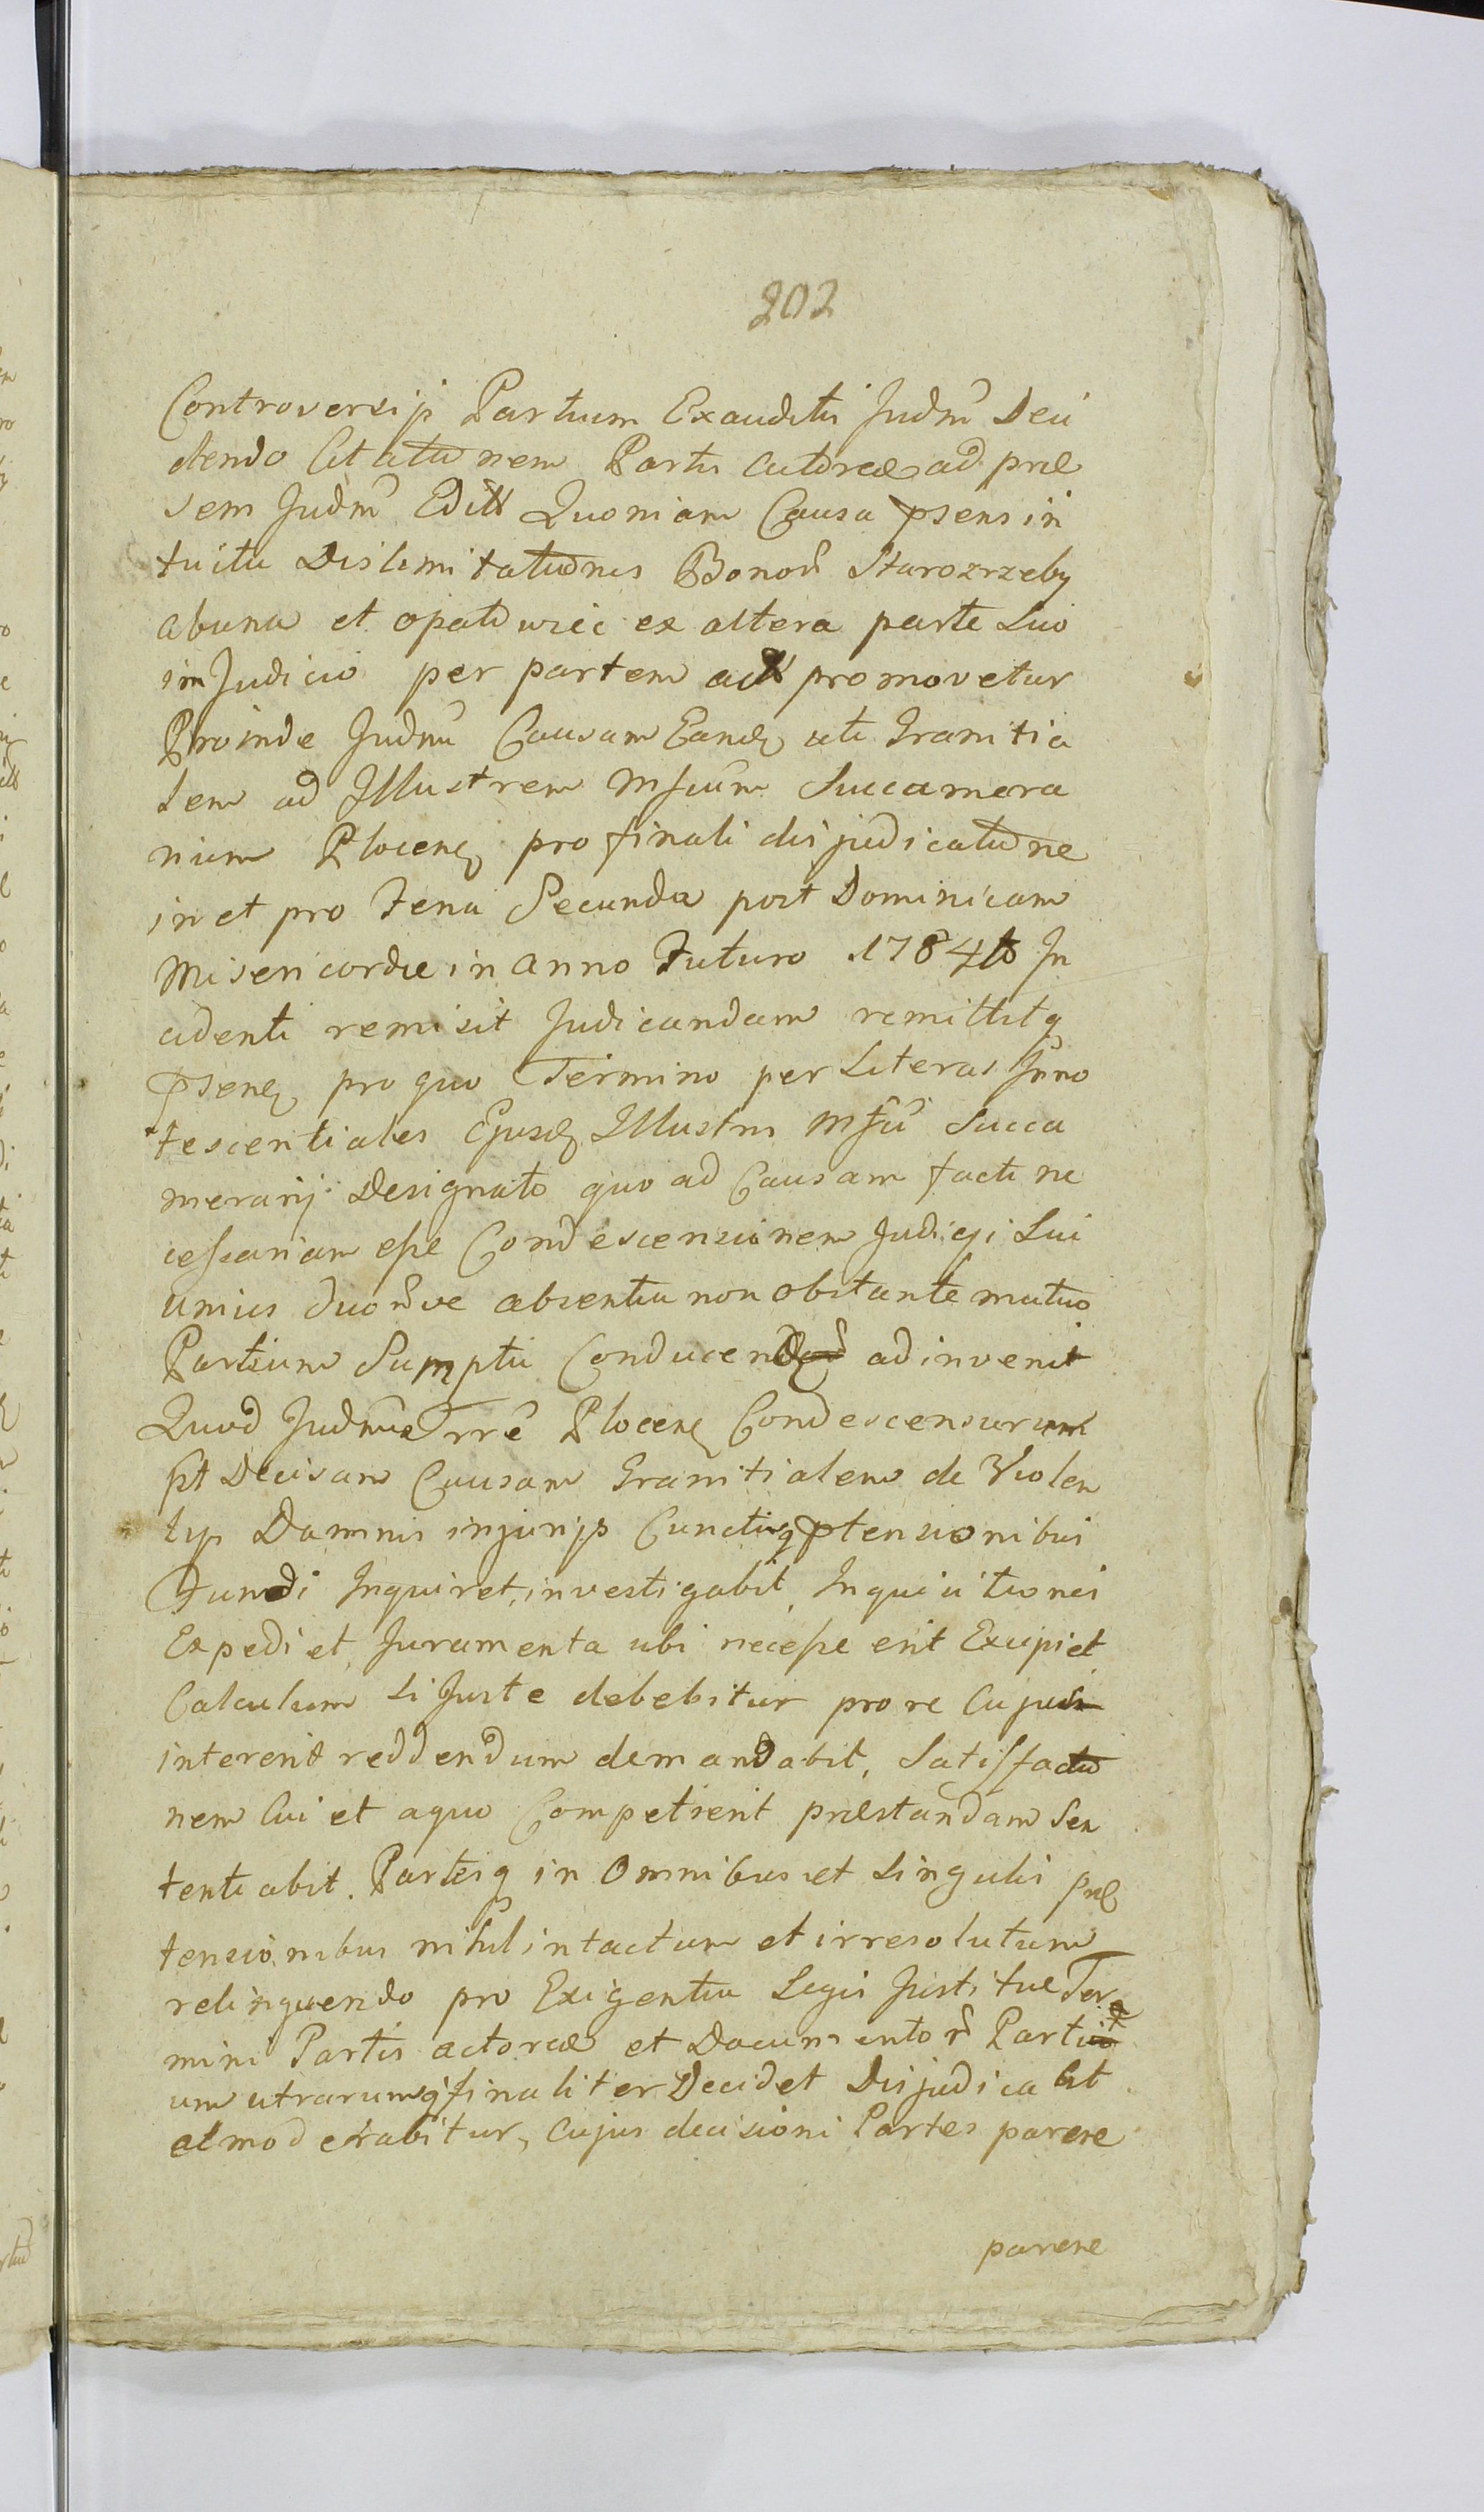 202
Controversijs Partium Exauditis Judm̃ Deci
dendo Citationem Partis actoreæ ad præ
sens Judm̃ Edit Quoniam Causa p̃sens in
tuitu Dislimitationis Bonor̃ Starozrzeby
ab una et Opatowiec ex altera parte Suo
in Judicio per partem act promovetur
Proinde Judm̃ Causam Eandq uti Graniția
lem ad Illustrem Mfcum Succamera
rium Plocenq pro finali disjudicatione
in et pro Feria Secunda post Dominicam
Misericordiæ in anno Futuro 1784to In
cidenti remisit Judicandam remittitq
p̃senq pro quo Termino per Literas Inno
tescentiales Ejusdq Illustris Mfci Succa
merarij Designato quo ad Causam facti ne
cessariam esse Condescensionem Judicji Sui
unius duor̃ve absentia non obstante mutuo
Partium Sumptu Conducendq adinvenit
Quod Judm̃ Trrẽ Plocenq Condescensurum
pt Decisam Causam Granitialem de Violen
tijs Damnis injurijs Cunctisq p̃tensionibus
Fundi Inquiret, investigabit, Inquisitiones
Expediet, Juramenta ubi necesse erit Excipiet
Calculum si Juste debebitur pro re Cujus
intererit reddendum demandabit, Satisfactio
nem Cui et a quo Competierit præstandam Sen
tentiabit. Partesq in Omnibus et Singulis præ
tensionibus nihil intactum et irresolutum
relinquendo pro Exigentia Legis Justitiæ Ter
mini Partis actoreæ et Documentor̃ Parti
um utrarumq̃ finaliter Decidet Disjudicabit
et moderabitur, Cujus decisioni Partes parere
parere